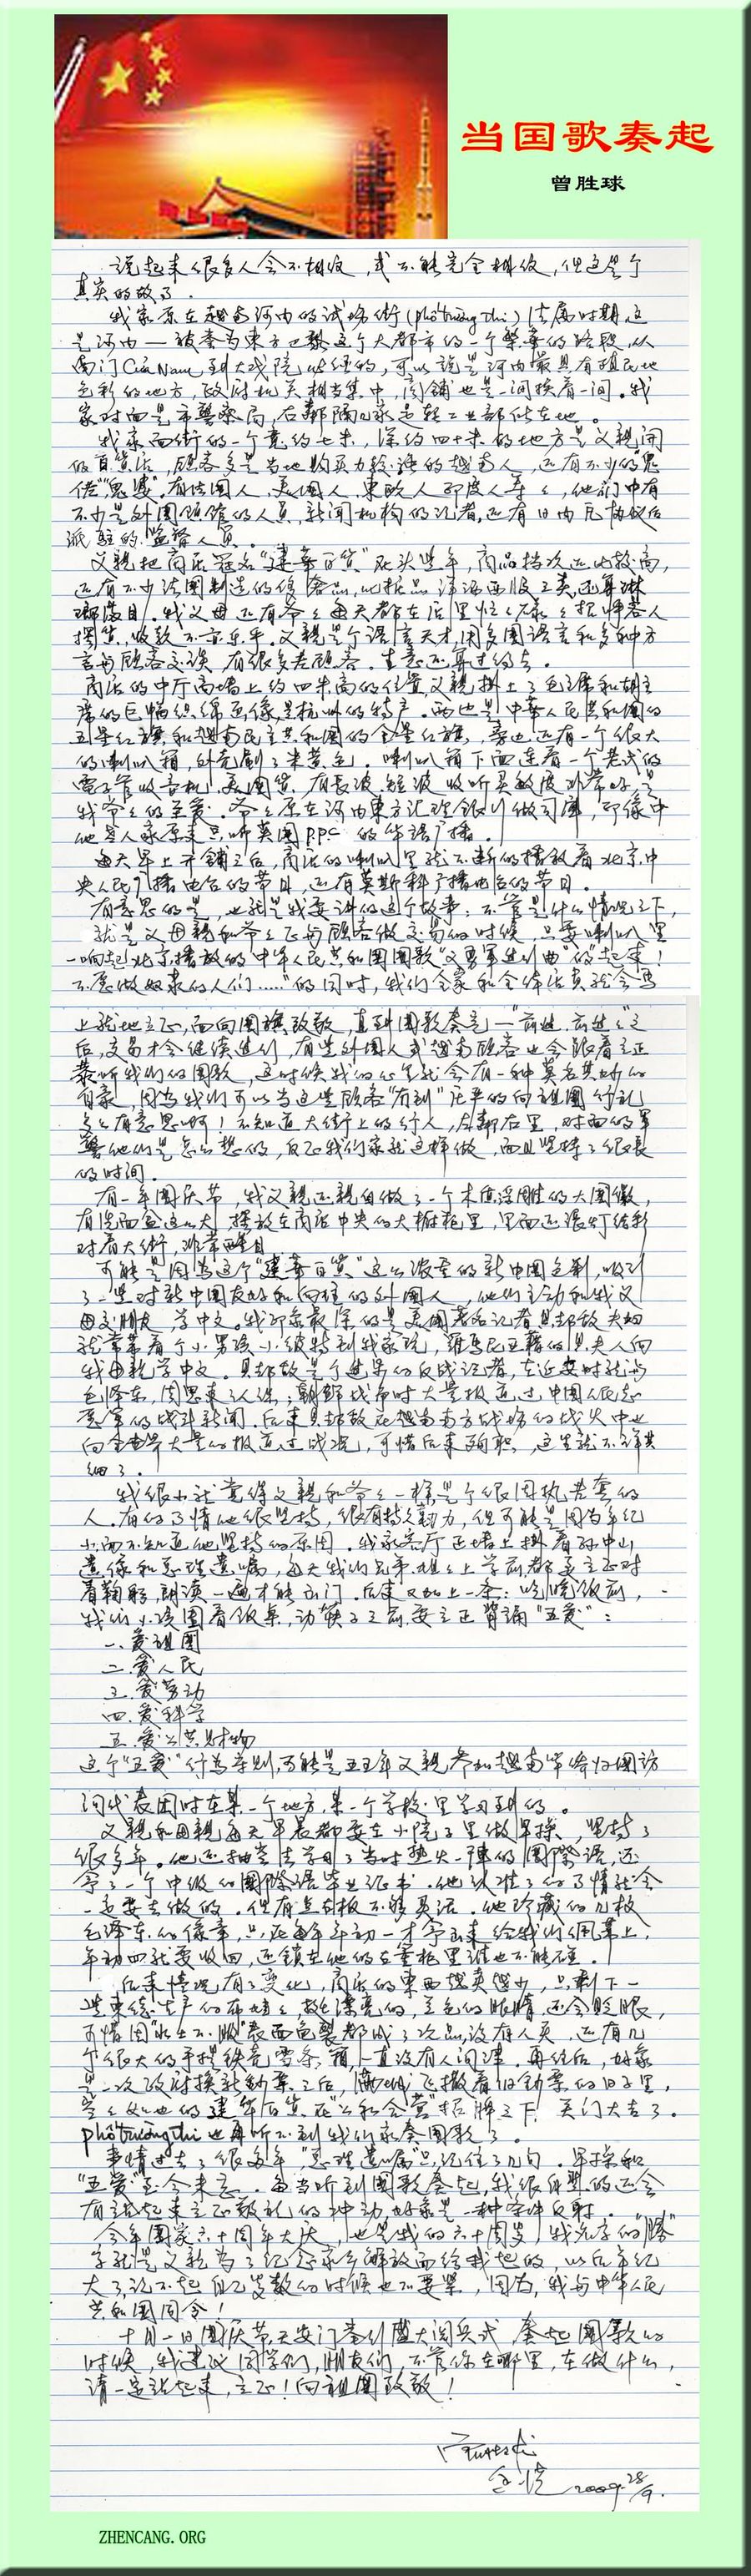 当国歌奏起
曾胜球
说起来很多人会不相信，或不能完全相信，但这是个
真实的故事。
我家原在越南河内的试场街(phố trường thi)法属时期这
是河内—被奉为东方巴黎这个大都市的一个繁华的路段，从
南门Cửa Nam到大戏院必经的，可以说是河内最具有殖民地
色彩的地方，政府机关相当集中，商铺也是一间挨着一间。我
家对面是市警察局，右邻隔几家是轻工业部所在地。
我家面街的一个宽约七米，深约四十米的地方是父亲开
的百货店，顾客多是当地购买力较强的越南人，还有不少的"鬼
佬""鬼婆"，有法国人、美国人、东欧人印度人等々，他们中有
不少是外国领馆的人员，新闻机构的记者，还有日内瓦协议后
派驻的监督人员。
父亲把商店冠名"建华百货"在头些年，商品档次还比较高，
还有不少法国制造的奢侈品，化妆品 洋酒西服之类，还算琳
瑯满目。我父母还有爷々每天都在店里忙々碌々招呼客人
摆货、收款不亦乐乎。父亲是个语言天才，用多国语言和多种方
言与顾客交谈，有很多老顾客，生意还算过得去。
商店的中厅高墙上约四米高的位置，父亲掛上了毛主席和胡主
席的巨幅织绵画像，是杭州的特产。两边是中华人民共和国的
五星红旗和越南民主共和国的金星红旗，旁边还有一个很大
的喇叭箱，外壳刷了米黄色。喇叭箱下面连着一个老式的
電子管收音机，美国货，有長波、短波，收听灵敏度非常好，是
我爷々的至爱。爷々原在河内東方汇理银行做司库，印像中
他老人家原来只听英国BBC的华语广播。
每天早上开铺之后，商店的喇叭里就不断的播放着北京中
央人民广播电台的节目，还有莫斯科广播电台的节目。
有意思的是，也就是我要讲的这个故事：不管是什么情况之下，
就是父母亲和爷々正与顾客做交易的时候，只要喇叭里
一响起北京播放的中华人民共和国国歌"义勇军进行曲"的"起来！
不愿做奴隶的人们……"的同时，我们全家和全体店员就会马
上就地立正，面向国旗致敬，直到国歌奏完—"前进、前进々"之
后，交易才会继续进行，有些外国人或越南顾客也会跟着立正
恭听我们的国歌，这时候我的心里就会有一种莫名其妙的
自豪，因为我们可以当这些顾客"看到"庄严的向祖国行礼
多么有意思啊！不知道大街上的行人，左邻右里，对面的军
警他们是怎么想的，反正我们家就这样做，而且坚持了很長
的时间。
有一年国庆节，我父亲还親自做了一个木质浮雕的大国徽，
有洗面盆这么大 摆放在商店中央的大橱柜里，里面还張灯结彩
对着大街，非常醒目。
可能是因为这个"建华百货"这么浓重的新中国色彩，吸引
了一些对新中国友好和向往的外国人，他们主动和我父
母交朋友、学中文。我印象最深的是美国著名记者贝却敌夫妇
就常带着个小男孩小彼特到我家玩，羅馬尼亚籍的贝夫人向
我母親学中文。贝却敌是个进步的反战记者，在延安时就与
毛泽东、周恩来认识；朝鲜战争时大量报道过中国人民志
愿军的战斗新闻。后来贝却敌在越南南方战场的战火中也
向全世界大量的报道过战况，可惜后来殉职，这些就不详其
细了。
我很小就觉得父親和爷々一样是个很固执老套的
人。有的事情他很坚持，很有持久韧力，但可能是因为年纪
小而不知道他坚持的原因。我家客厅正墙上掛着孙中山
遺像和总理遗嘱，每天我们兄弟姐々上学前都要立正对
着鞠躬，朗读一遍才能出门。后来又加上一条：吃晚饭前，
我们小孩围着饭桌，动筷子之前要立正背诵"五爱"：
一.爱祖国
二.爱人民
三.爱劳动
四.爱科学
五.爱公共财物
这个"五爱"行为准则，可能是五五年父親参加越南华侨归国访
问代表团时在某一个地方，某一个学校里学习到的。
父親和母親每天早晨都要在小院子里做早操，坚持了
很多年。他还抽空去学习了当时热火一陣的国際语，还
拿了一个中级的国際语毕业证书。他认准了的事情就会
一定要去做的，但有点刻板不够灵活。他珍藏的几枚
毛泽东的像章，只在每年年初一才拿出来给我们佩戴上，
年初四就要收回，还锁在他的玄董柜里谁也不能碰。
后来情况有了变化，商店的東西越卖越少，只剩下一
些東德生产的布娃々，挺漂亮的，蓝色的眼睛，还会眨眼，
可惜因"水土不服"表面龟裂都成了次品，没有人买，还有几
个很大的手提铁壳雪条箱，一直没有人问津。再往后，好象
是一次政府换新钞票之后，满城飞撒着旧钞票的日子里，
爸々妈々的建华百货在"公私合营"招牌之下，关门大吉了。
phố trường thi也再听不到我们家奏国歌了。
事情过去了很多年，"总理遗嘱"只记住了几句。早操和
"五爱"至今未忘。每当听到国歌奏起，我很自然的还会
有站起来立正敬礼的冲动，好象是一种条件反射。
今年国家六十周年大庆，也是我的六十周岁，我名字的"勝"
字就是父親为了纪念家乡解放而给我起的，以后年纪
大了，记不起自己岁数的时候也不要紧，因为，我与中华人民
共和国同令！
十月一日国庆节天安门举行盛大阅兵式，奏起国歌的
时候，我建议同学们，朋友们，不管你在哪里，在做什么，
请一定站起来，立正！向祖国致敬！
2009.28/9.
ZHENCANG.ORG